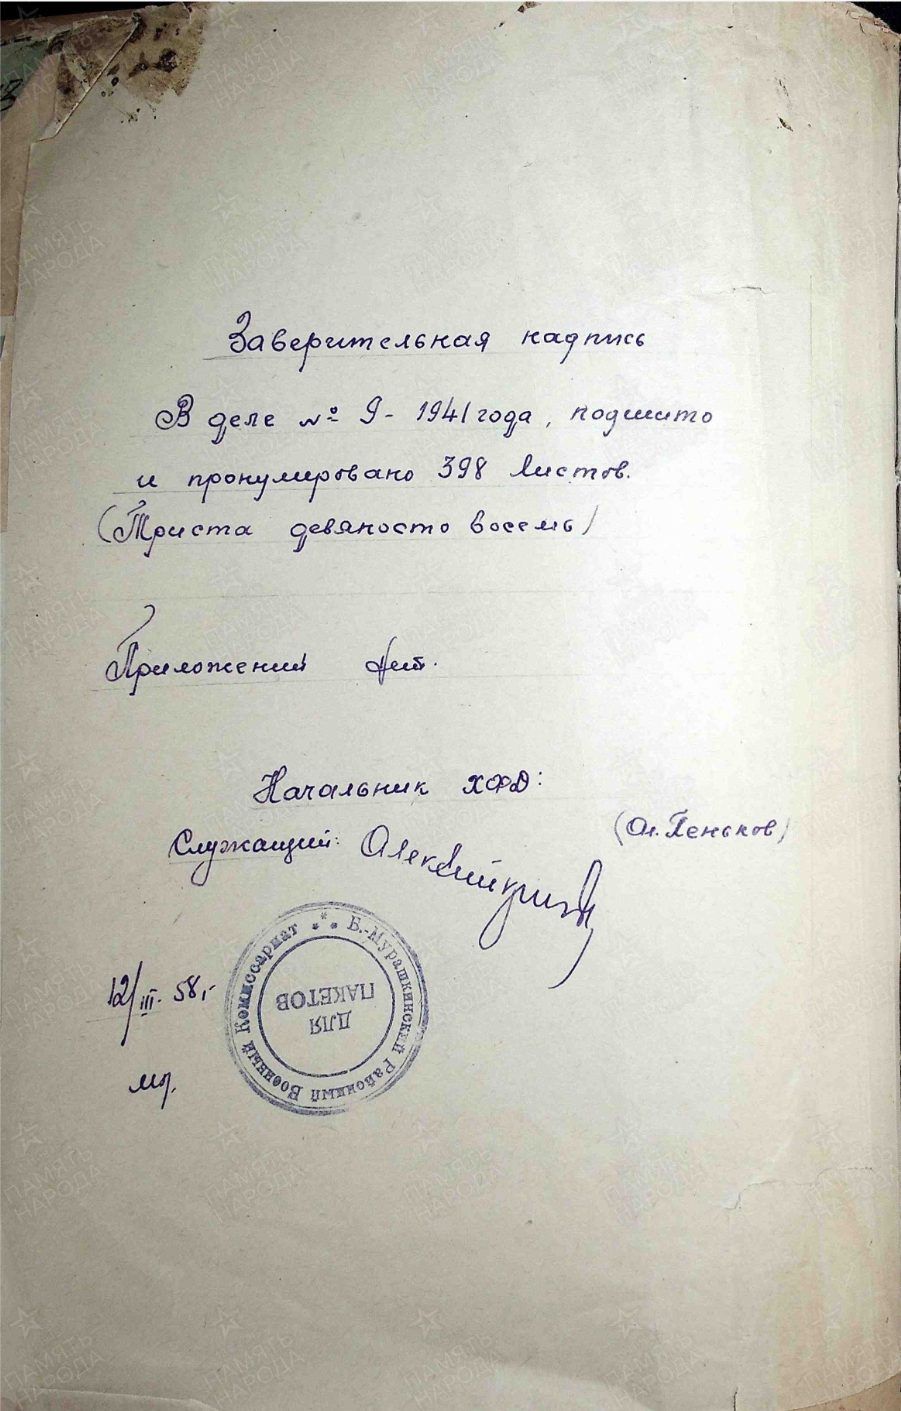 Заверительная надпись
В деле № 9 - 1941 года, подшито
и пронумеровано 398 листов.
(Триста девяносто восемь)
Приложений нет.
Начальник ХФД:
(Пеньков)
Служащий:
Б.-Мурашкинский Районный Военный Комиссариат
ДЛЯ
ПАКЕТОВ
12/III-58г.
мп.
ПАМЯТЬ
НАРОДА